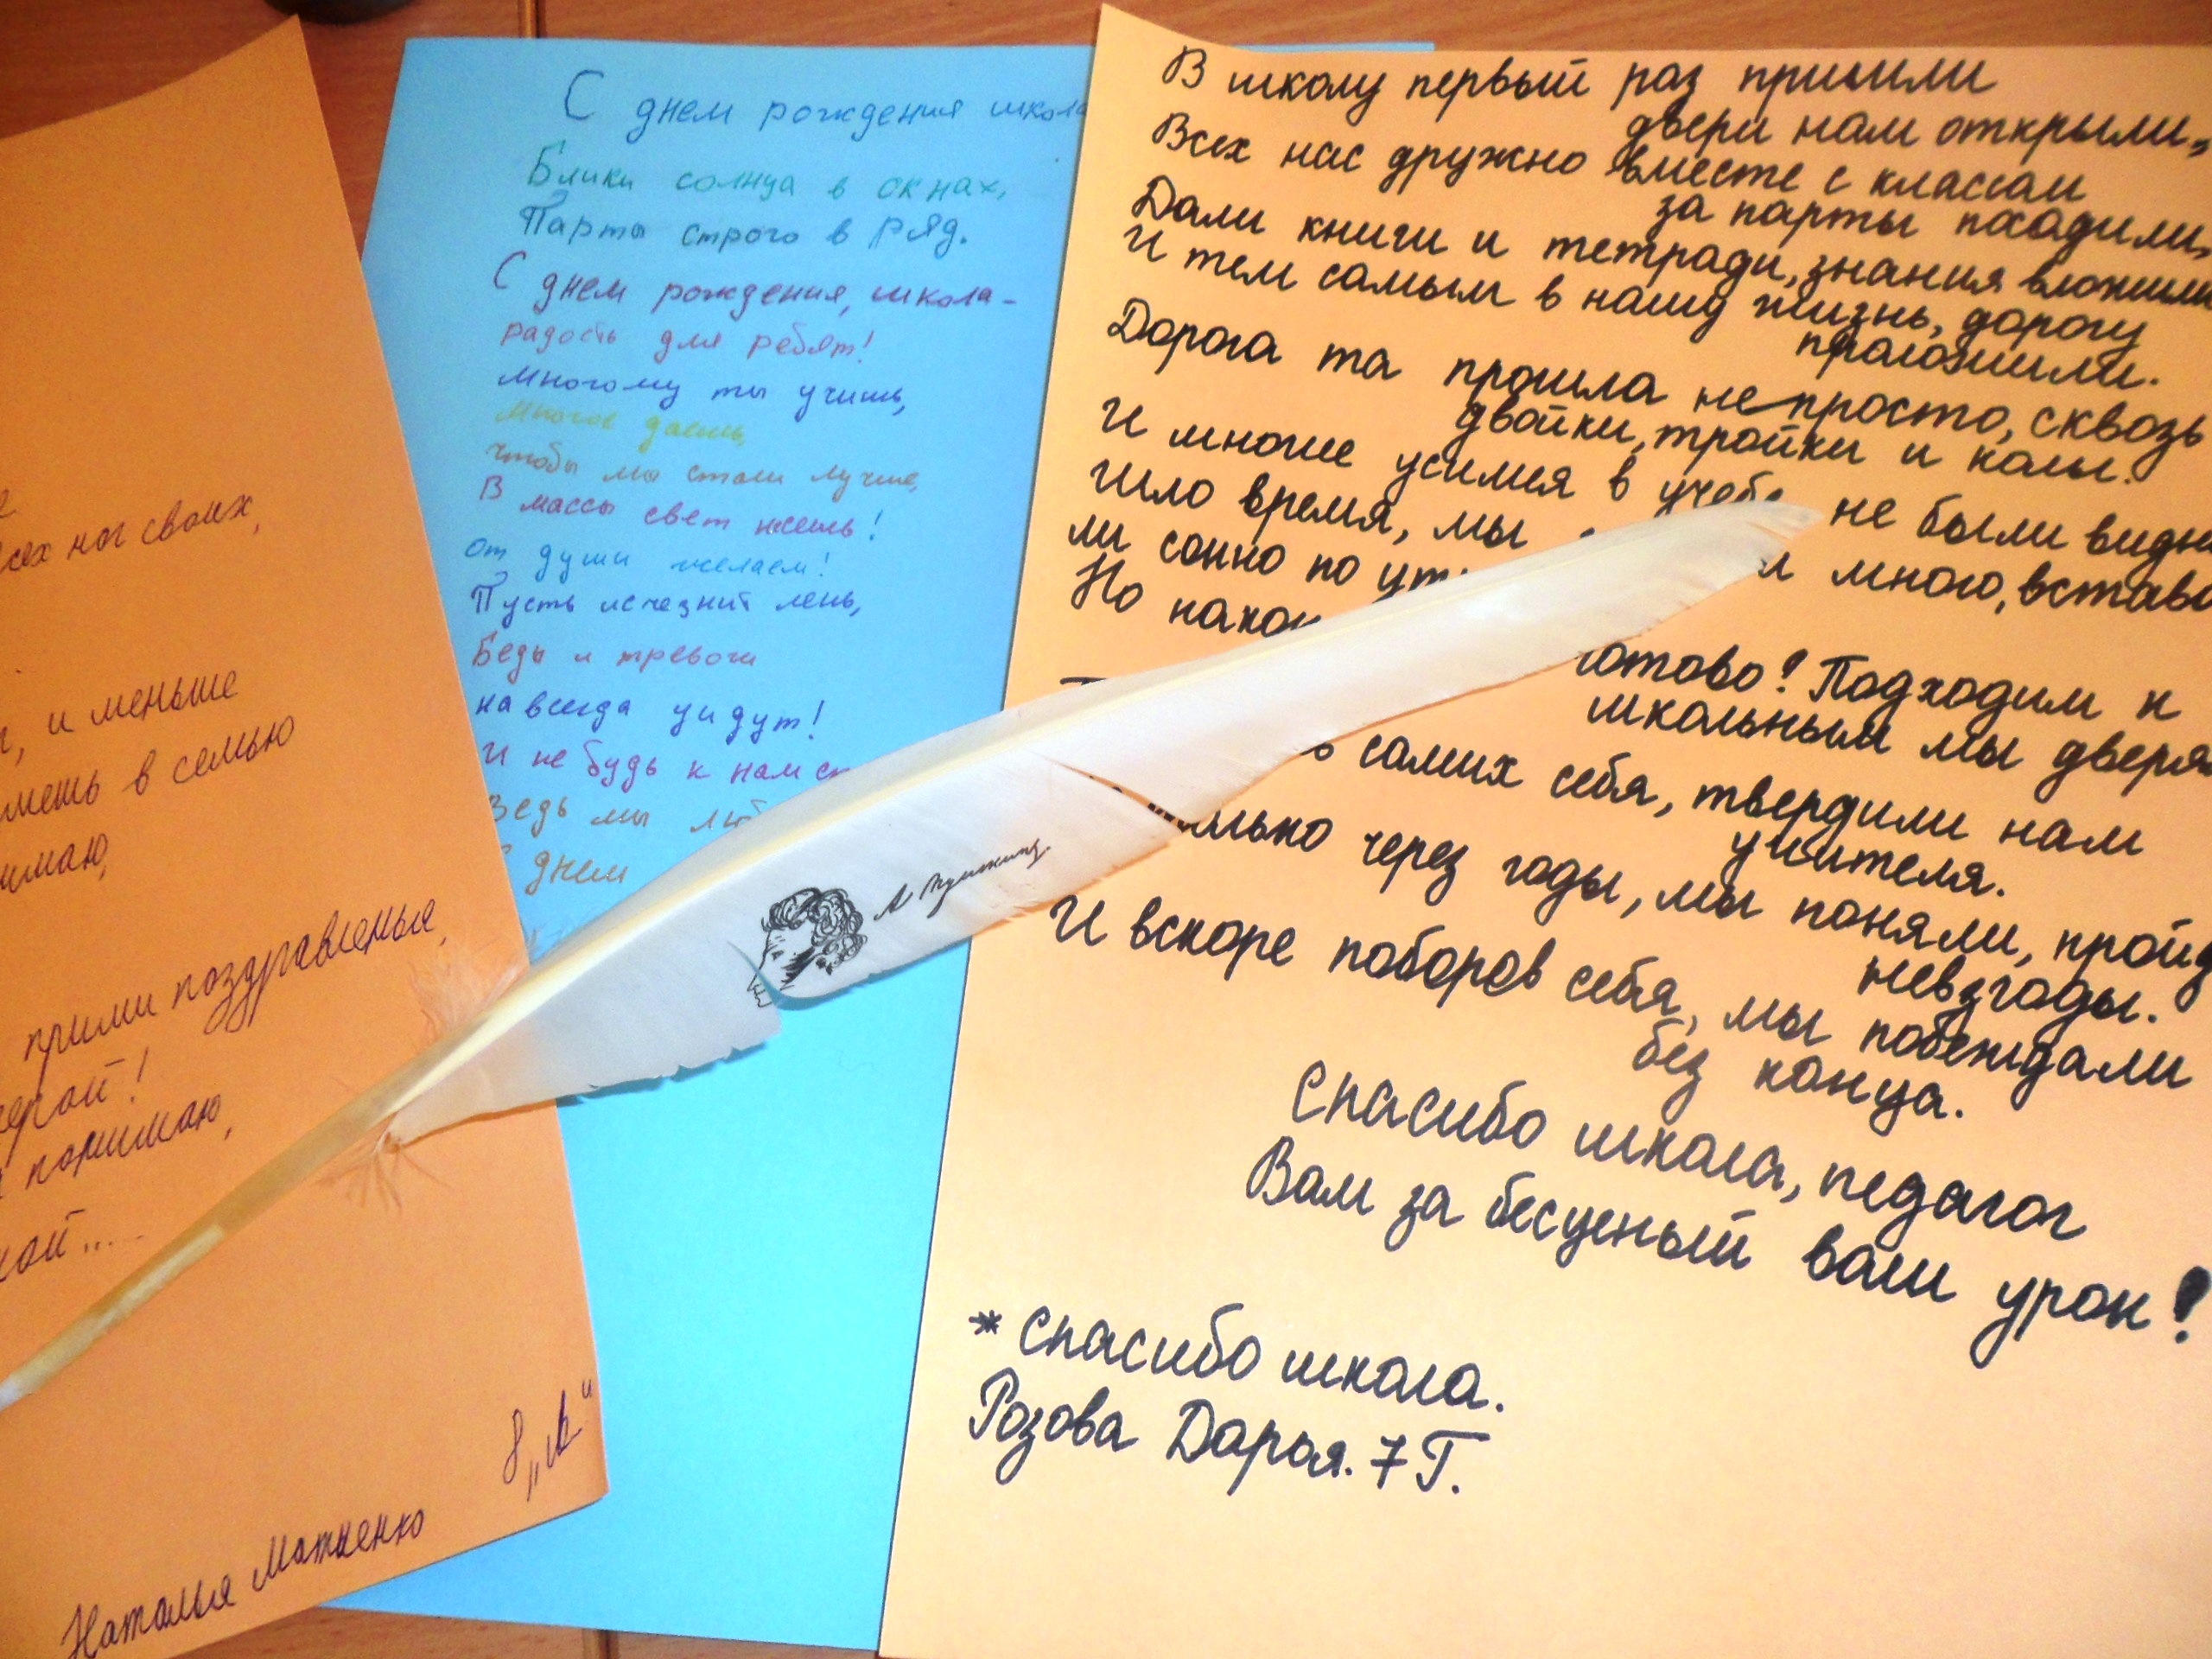 сех ног своих,
и меньше
мешь в семью
нимаю,
прими поздравленья,
герой!
понимаю,
кой....
8 „А"
Наталья Матиенко
С днем рождения школа
Блики солнца в окнах,
Парты строго в ряд.
С днем рождения, школа-
радость для ребят!
Многому ты учишь,
многое даешь,
чтобы мы стали лучше,
В массы свет несешь!
От души желаем!
Пусть исчезнит лень,
Беды и тревоги
навсегда уйдут!
И не будь к нам
Ведь мы
С днем
А Пушкинъ.
В школу первый раз пришли
двери нам открыли,
Всех нас дружно вместе с классам
за парты посадили,
Дали книги и тетради, знания вложили
И тем самым в нашу жизнь, дорогу
проложили.
Дорога та прошла непросто, сквозь
двойки, тройки и колы.
И многие усилия в учебе не были видны
Шло время, мы много, встава
ли сонно по
Но
готово! Подходим к
школьным мы дверям
самих себя, твердили нам
учителя.
только через годы, мы поняли, пройдя
невзгоды.
И вскоре поборов себя, мы побеждали
без конца.
Спасибо школа, педагог
Вам за бесценый ваш урок!
* Спасибо школа.
Розова Дарья. 7 Г.